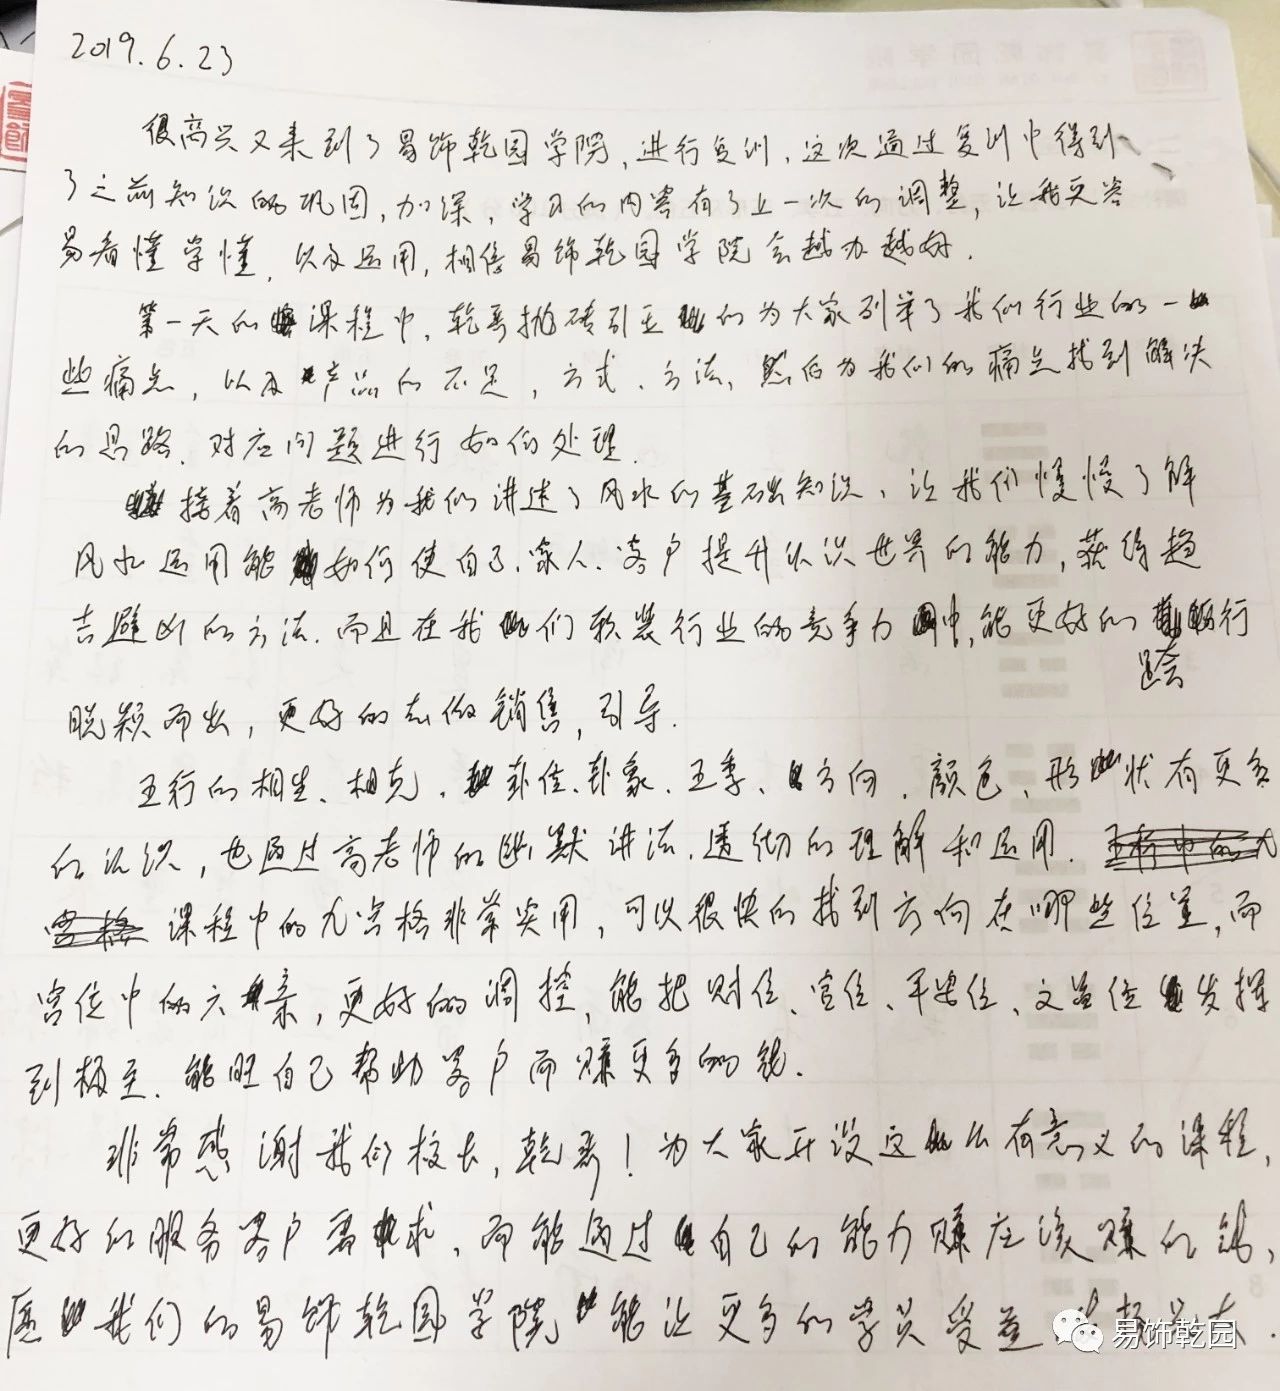 2019.6.23
很高兴又来到了易饰乾园学院,进行复训,这次通过复训中得到
了之前知识的巩固,加深,学习的内容有了上一次的调整,让我更容
易看懂学懂,以及运用,相信易饰乾园学院会越办越好.
第一天的课程中,乾哥抛砖引玉的为大家列举了我们行业的一
些痛点,以及产品的不足,方式、方法,然后为我们的痛点找到解决
的思路,对应问题进行如何处理.
接着高老师为我们讲述了风水的基础知识,让我们慢慢了解
风水运用能如何使自己、家人、客户提升认识世界的能力,获得趋
吉避凶的方法.而且在我们软装行业的竞争力中,能更好的行
脱颖而出,更好的去做销售,引导.
五行的相生、相克,卦位、卦象、五季、方向、颜色、形状有更多
的认识,也通过高老师的幽默讲法,透彻的理解和运用.
课程中的九宫格非常实用,可以很快的找到方向在哪些位置,而
宫位中的六亲,更好的调控,能把财位、官位、文昌位发挥
到极至.能旺自己帮助客户而赚更多的钱.
非常感谢我们校长,乾哥!为大家开设这么有意义的课程,
更好的服务客户需求,而能通过自己的能力赚应该赚的钱,
愿我们的易饰乾园学院能让更多的学员受益
易饰乾园